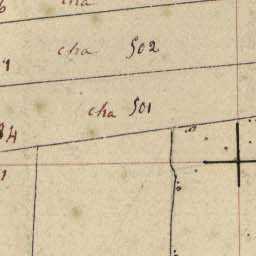 cha
cha 502
cha 501